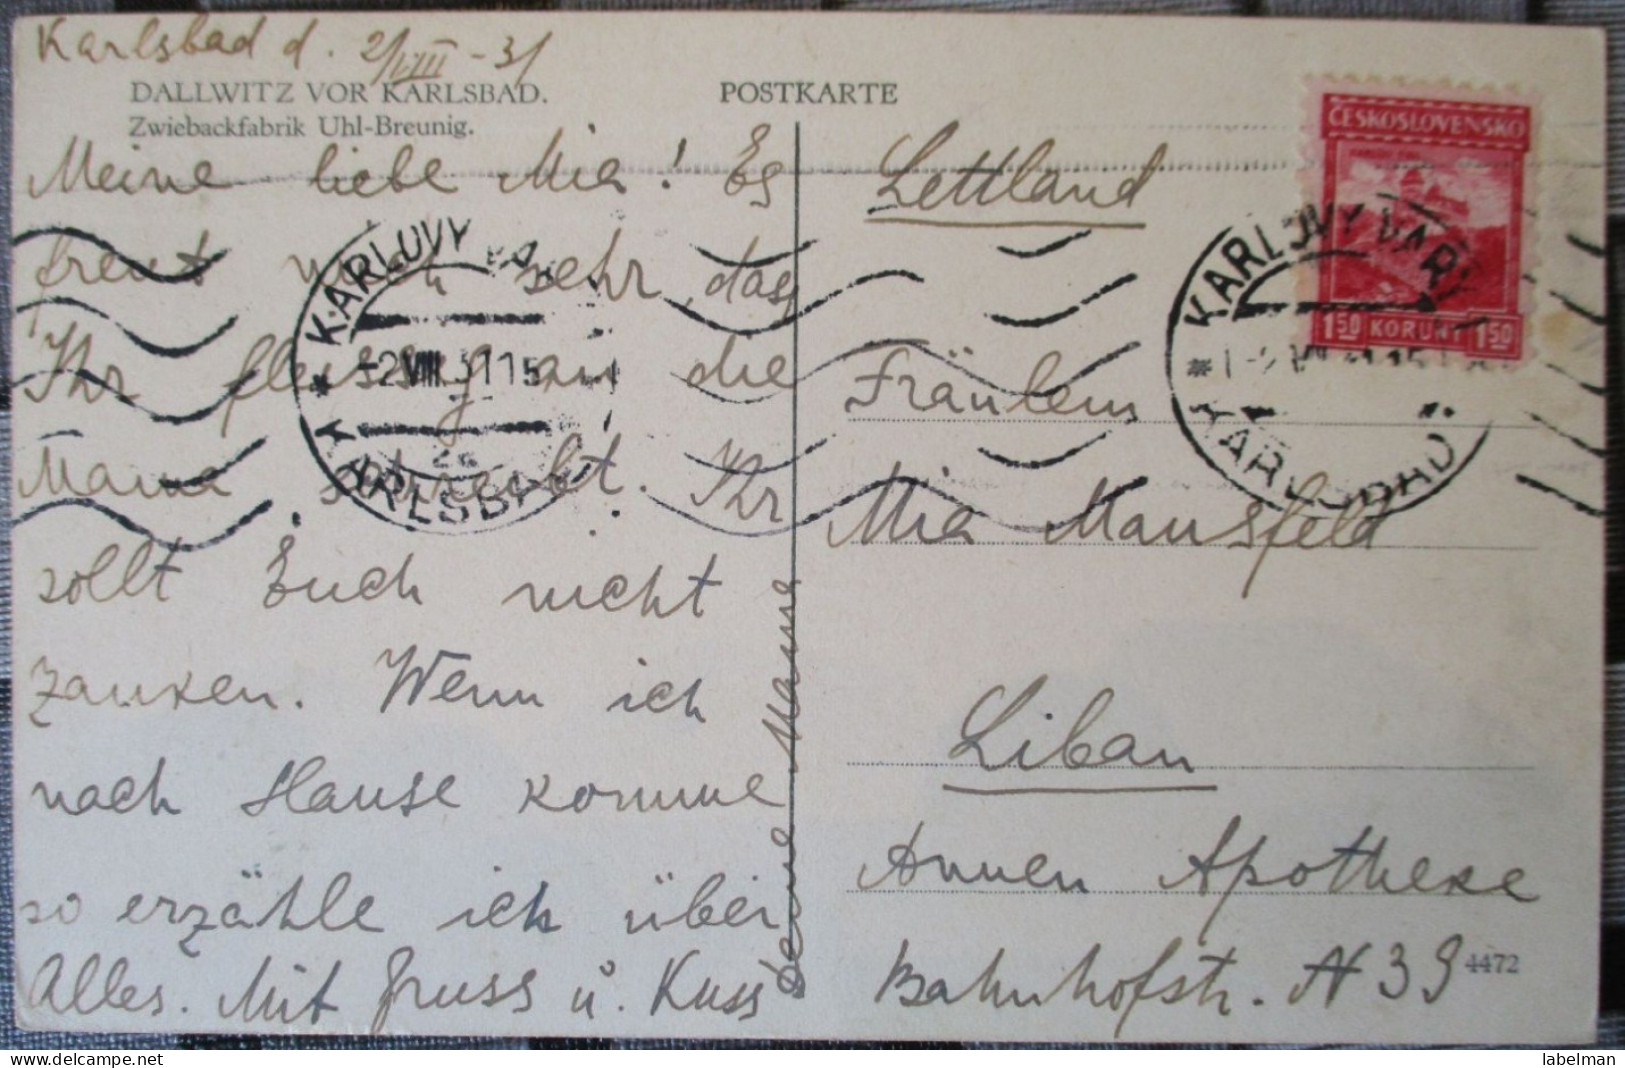 Karlsbad d. 2/VIII - 31
DALLWITZ VOR KARLSBAD.
Zwiebackfabrik Uhl-Breunig.
POSTKARTE
Meine liebe Mia! Es
freut mich sehr, das
Ihr fleissig an die
Mama schreibt. Ihr
sollt Euch nicht
zanken. Wenn ich
nach Hause komme
so erzähle ich über
Alles. Mit Gruss u. Kuss
Deine Mama
KARLOVY VARY
-2.VIII.31 15
2a
KARLSBAD
ČESKOSLOVENSKO
1.50 KORUNY 1.50
KARLOVY VARY
KARLSBAD
Lettland
Fräulein
Mia Mansfeld
Liban
Annen Apotheke
Bahnhofstr. N 39
4472
labelman